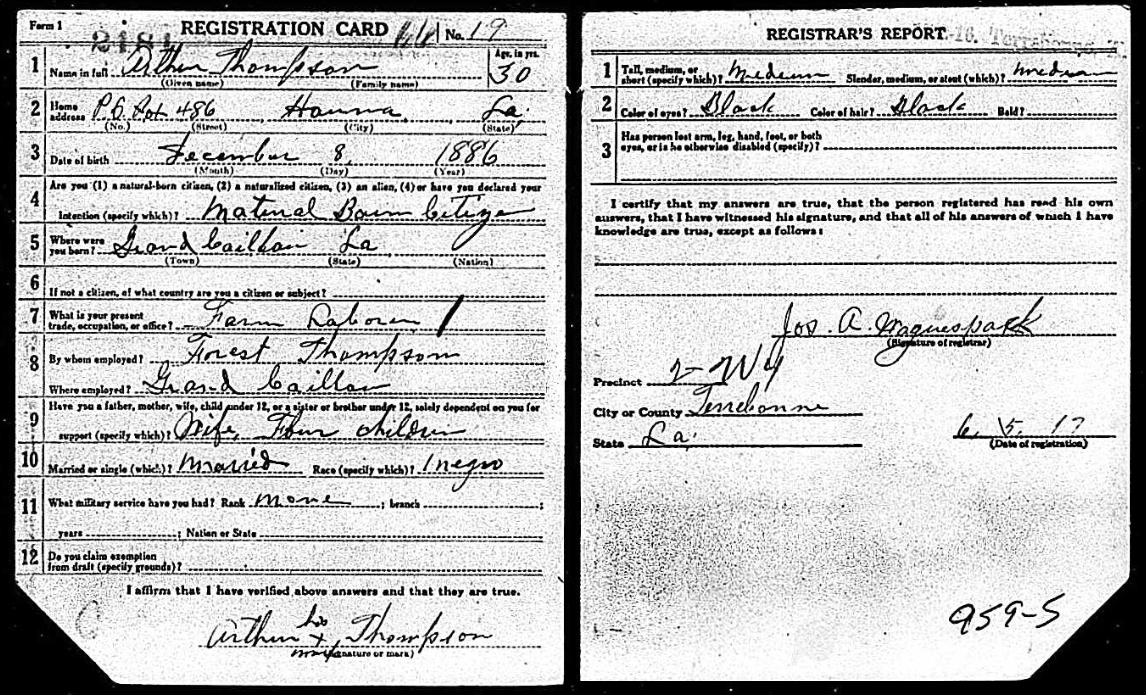 Form 1
REGISTRATION CARD
No. 19
2181
1 Name in full Arthur Thompson
(Given name) (Family name)
Age, in yrs.
30
2 Home address P.O. Box 486 Houma La.
(No.) (Street) (City) (State)
3 Date of birth December 8, 1886
(Month) (Day) (Year)
4 Are you (1) a natural-born citizen, (2) a naturalized citizen, (3) an alien, (4) or have you declared your
intention (specify which)? Natural Born Citizen
5 Where were you born? Grand Caillou La
(Town) (State) (Nation)
6 If not a citizen, of what country are you a citizen or subject?
7 What is your present trade, occupation, or office? Farm Laborer
8 By whom employed? Forest Thompson
Where employed? Grand Caillou
9 Have you a father, mother, wife, child under 12, or a sister or brother under 12, solely dependent on you for
support (specify which)? Wife, Four children
10 Married or single (which)? Married Race (specify which)? negro
11 What military service have you had? Rank None ; branch ;
years ; Nation or State
12 Do you claim exemption
from draft (specify grounds)?
I affirm that I have verified above answers and that they are true.
his
Arthur x Thompson
mark
(Signature or mark)
REGISTRAR'S REPORT
1 Tall, medium, or short (specify which)? Medium Slender, medium, or stout (which)? medium
2 Color of eyes? Black Color of hair? Black Bald?
3 Has person lost arm, leg, hand, foot, or both
eyes, or is he otherwise disabled (specify)?
I certify that my answers are true, that the person registered has read his own
answers, that I have witnessed his signature, and that all of his answers of which I have
knowledge are true, except as follows:
Jos. A. Waguespack
(Signature of registrar)
Precinct 2-W4
City or County Terrebonne
State La.
6. 5. 17
(Date of registration)
959-5